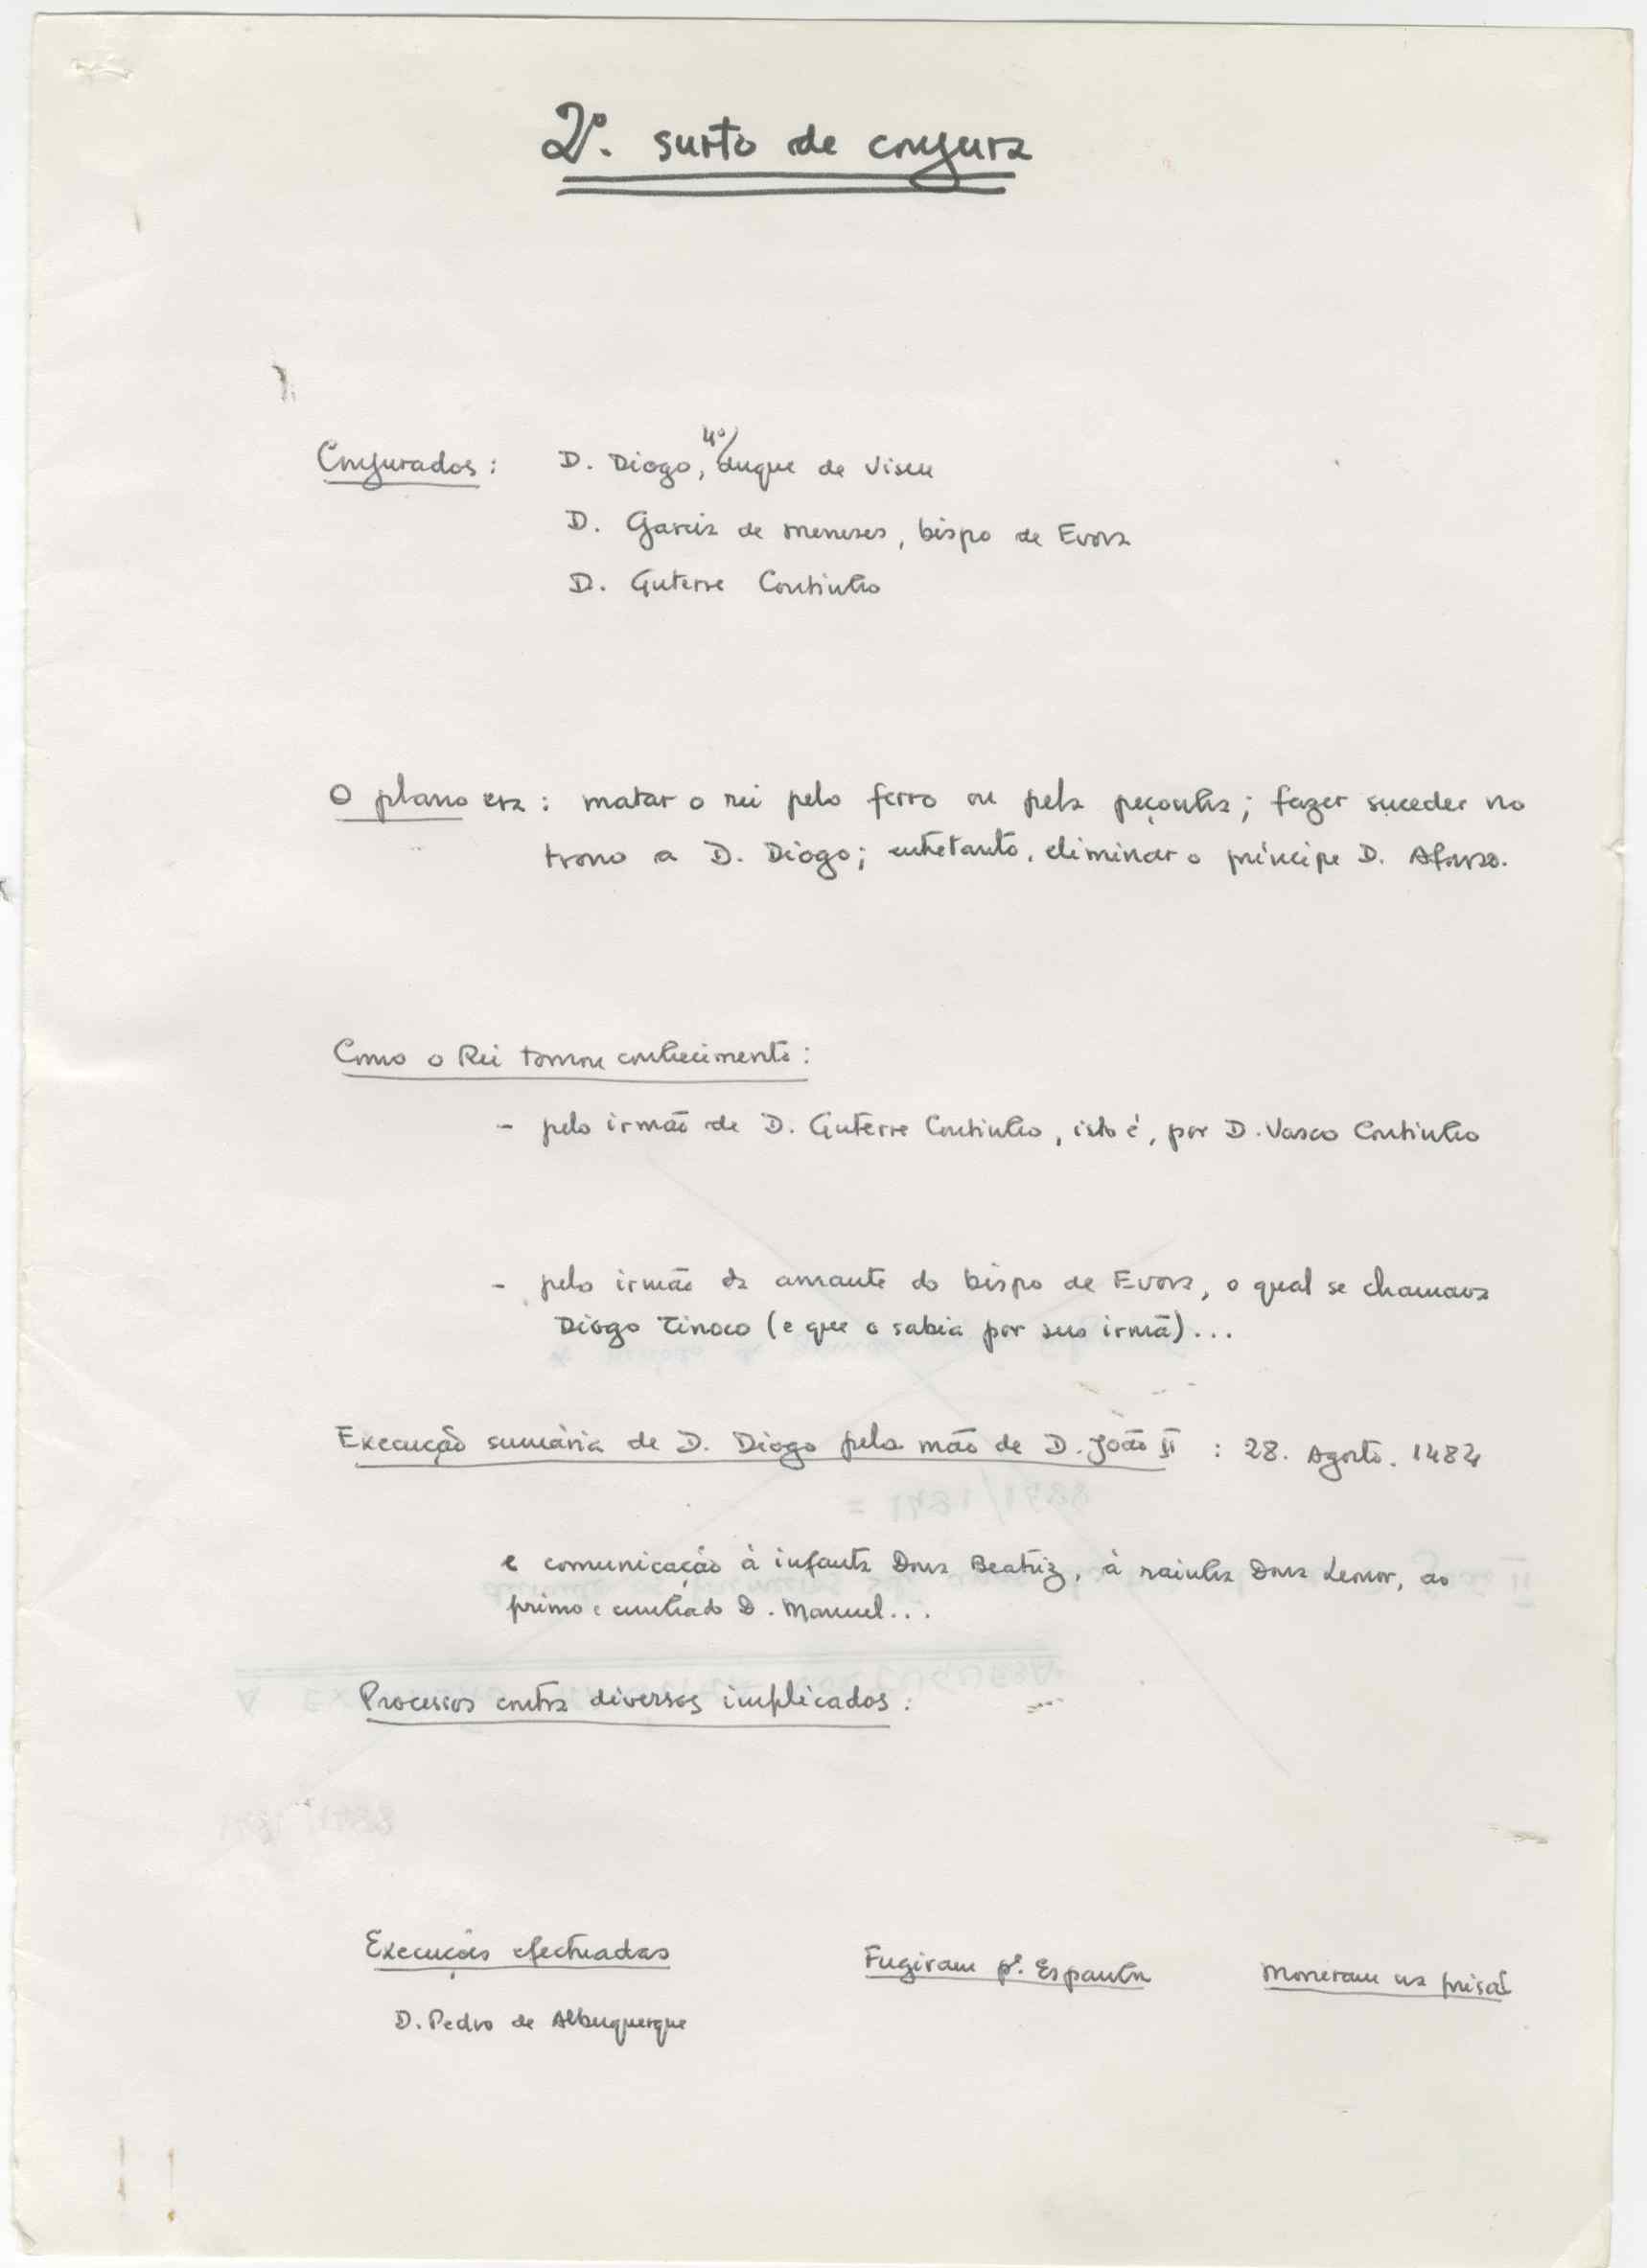 2º. surto de conjura
Conjurados: D. Diogo, 4º/ duque de Viseu
D. Garcia de Meneses, bispo de Evora
D. Guterre Coutinho
O plano era: matar o rei pelo ferro ou pela peçonha; fazer suceder no
trono a D. Diogo; entretanto, eliminar o príncipe D. Afonso.
Como o Rei tomou conhecimento:
- pelo irmão de D. Guterre Coutinho, isto é, por D. Vasco Coutinho
- pelo irmão da amante do bispo de Evora, o qual se chamava
Diogo Tinoco (e que o sabia por sua irmã)...
Execução sumária de D. Diogo pela mão de D. João II : 28. Agosto. 1484
e comunicação à infanta Dona Beatriz, à rainha Dona Leonor, ao
primo e cunhado D. Manuel...
Processos contra diversos implicados:
Execuções efectuadas Fugiram pª. Espanha Morreram na prisão
D. Pedro de Albuquerque